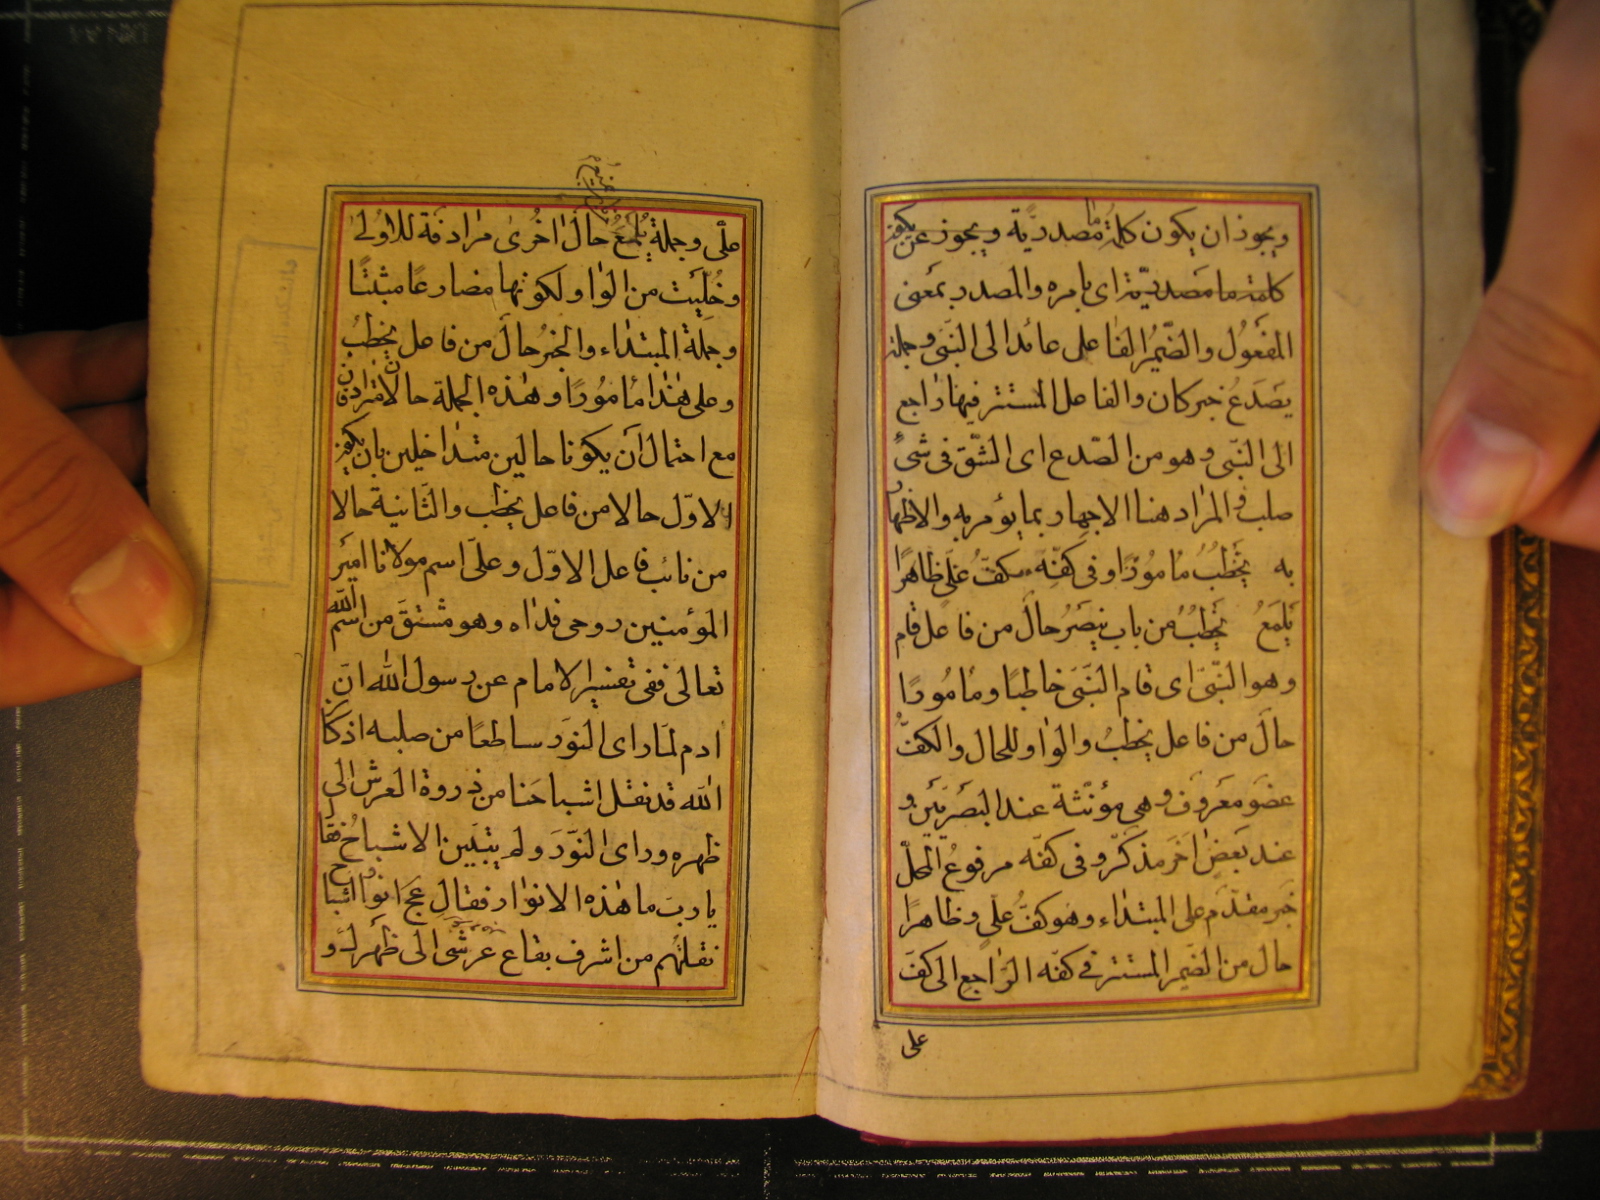 ويجوز ان يكون كلمة ما مصدرية ويجوز عن يكون
كلمة ما مصدرية اى بامره والمصدر بمعنى
المفعول والضمير الفاعلى عائدا الى النبى وجملة
يصدع خبر كان والفاعل المستتر فيها راجع
الى النبى وهو من الصدع اى الشق فى شئ
صلب والمراد هنا الاجهار بما يؤمر به والاظهار
به يخطب مامورا وفى كفه كف على ظاهرا
يلمع يخطب من باب ينصر حال من فاعل قام
وهو النبى اى قام النبى خاطبا ومامورا
حال من فاعل يخطب والواو للحال والكف
عضو معروف وهى مؤنثة عند البصريين و
عند بعض اخر مذكر وفى كفه مرفوع المحل
خبر مقدم على المبتداء وهو كف على وظاهرا
حال من الضمير المستتر فى كفه الراجع الى كف
على
على وجملة يلمع حال اخرى مرادفة للاولى
وخليت من الواو لكونها مضارعا مثبتا
وجملة المبتداء والخبر حال من فاعل يخطب
وعلى هذا مامورا وهذه الجملة حالان مترادفان
مع احتمال ان يكونا حالين متداخلين بان يكون
الاول حالا من فاعل يخطب والثانية حالا
من نائب فاعل الاول وعلى اسم مولانا امير
المؤمنين روحى فداه وهو مشتق من اسم الله
تعالى ففى تفسير الامام عن رسول الله ان
ادم لما راى النور ساطعا من صلبه اذ كان
الله قد نقل اشباحنا من ذروة العرش الى
ظهره وراى النور ولم يتبين الاشباح فقال
يا رب ما هذه الانوار فقال عج انوار اشباح
نقلتهم من اشرف بقاع عرشى الى ظهرك و